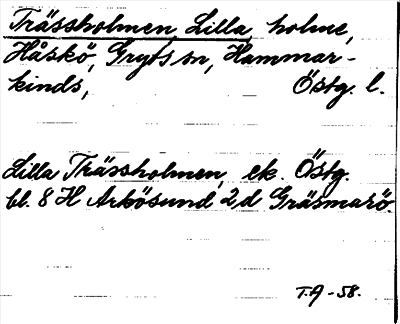 Trässholmen, Lilla, holme,
Håskö, Gryts sn, Hammar-
kinds, Östg. l.
Lilla Trässholmen, ek. Östg.
bl. 8 H Arkösund 2 d Gräsmarö
T.A -58.